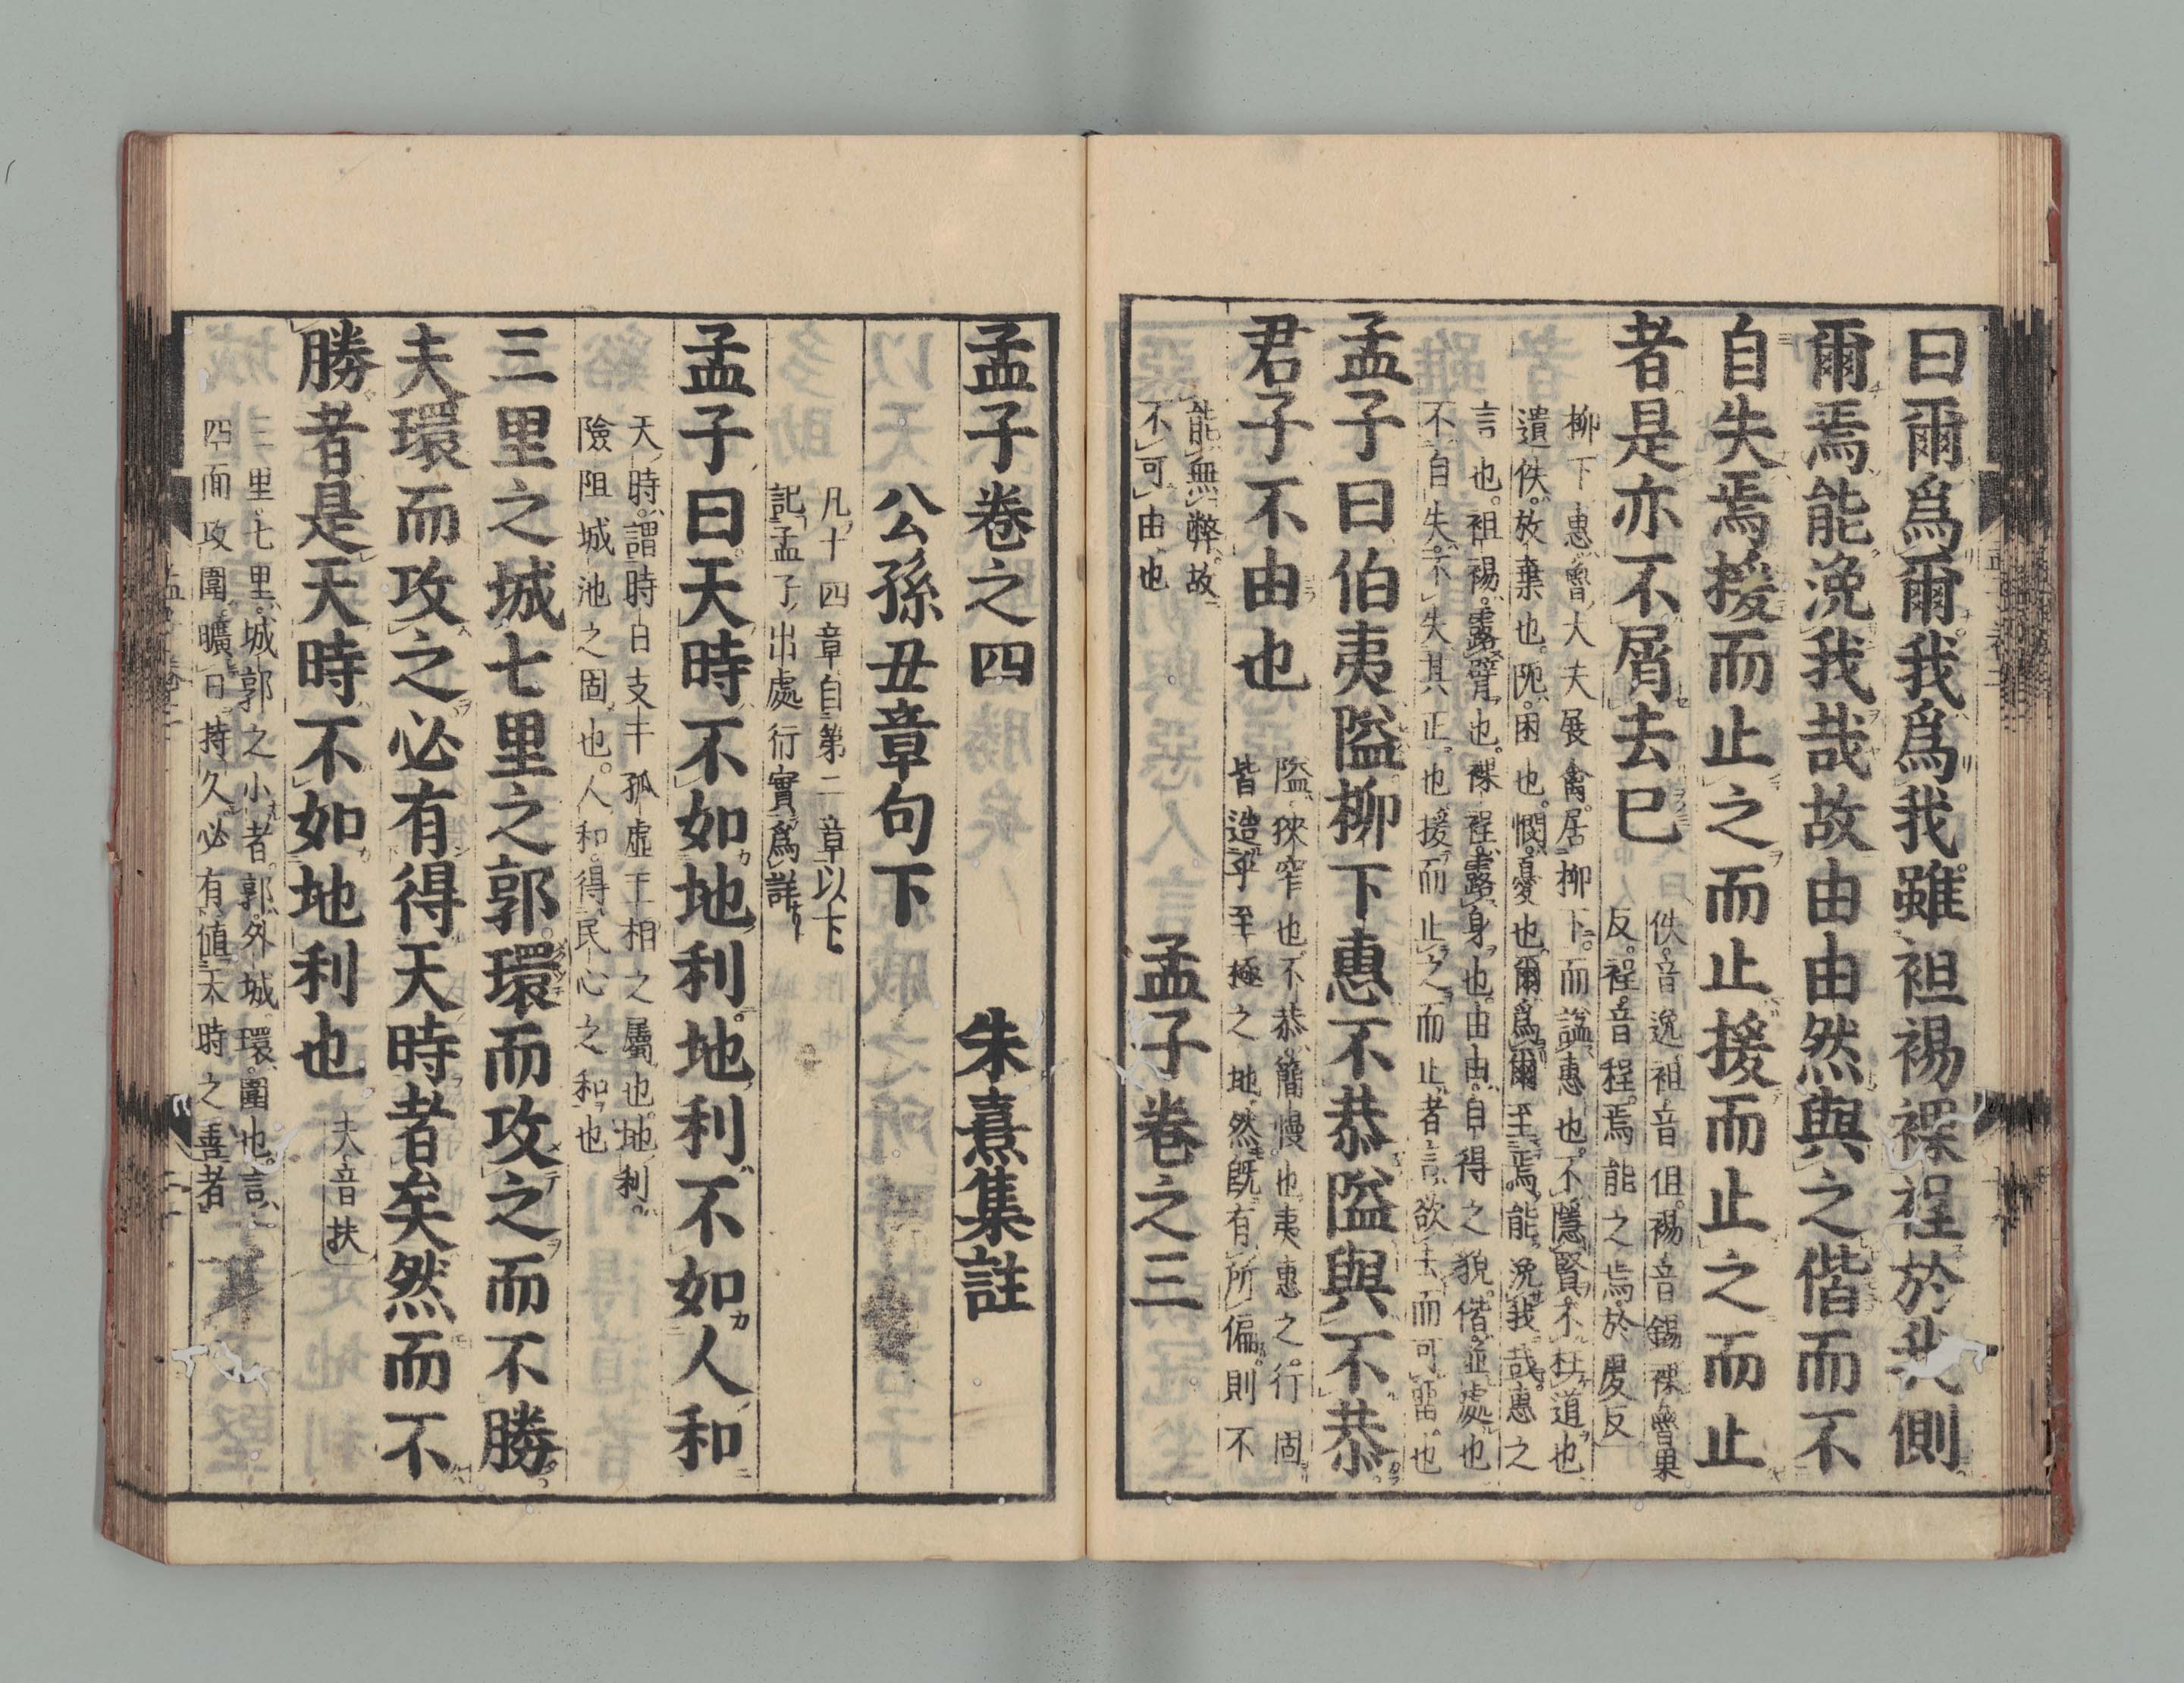 曰爾爲爾我爲我雖袒裼裸裎於我側
爾焉能浼我哉故由由然與之偕而不
自失焉援而止之而止援而止之而止
者是亦不屑去已
佚音逸袒音但裼音錫裸魯果
反裎音程焉能之焉於虔反
柳下惠魯大夫展禽居柳下而諡惠也不隱賢不枉道也
遺佚放棄也阨困也憫憂也爾爲爾至焉能浼我哉惠之
言也袒裼露臂也裸裎露身也由由自得之貌偕並處也
不自失不失其正也援而止之而止者言欲去而可留也
孟子曰伯夷隘柳下惠不恭隘與不恭
君子不由也
隘狹窄也不恭簡慢也夷惠之行固
皆造乎至極之地然既有所偏則不
能無弊故
不可由也
孟子卷之三
孟子卷之四
朱熹集註
公孫丑章句下
凡十四章自第二章以下
記孟子出處行實爲詳
孟子曰天時不如地利地利不如人和
天時謂時日支干孤虛王相之屬也地利
險阻城池之固也人和得民心之和也
三里之城七里之郭環而攻之而不勝
夫環而攻之必有得天時者矣然而不
勝者是天時不如地利也
夫音扶
三里七里城郭之小者郭外城環圍也言
四面攻圍曠日持久必有値天時之善者